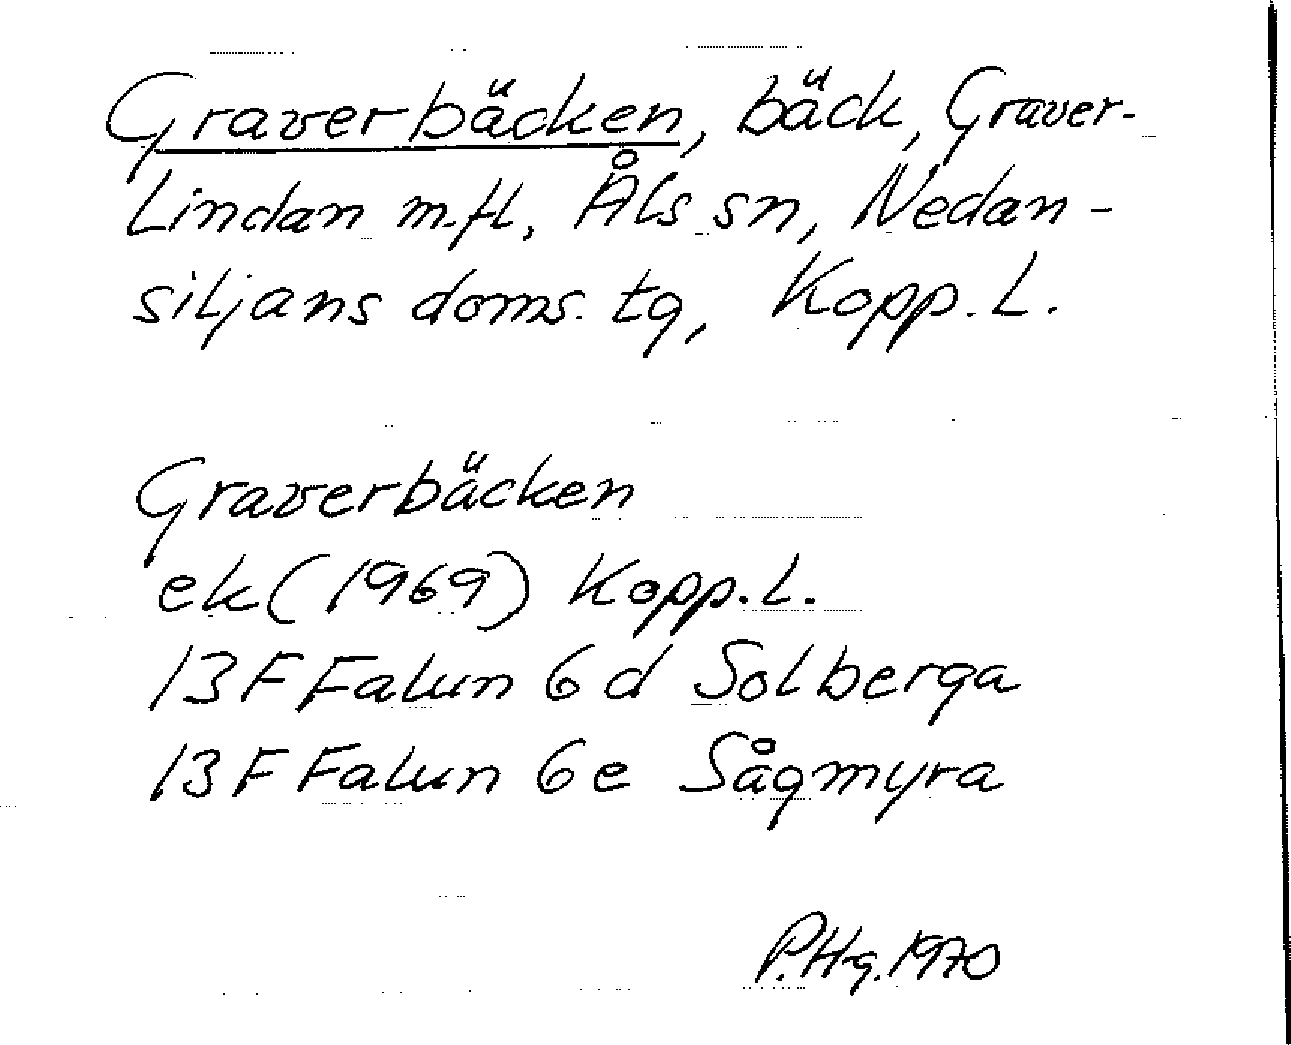 Graverbäcken, bäck, Graver-
Lindan m.fl., Åls sn, Nedan-
siljans doms. tg, Kopp. L.
Graverbäcken
ek (1969) Kopp. L.
13F Falun 6d Solberga
13F Falun 6e Sågmyra
P.Hg. 1970